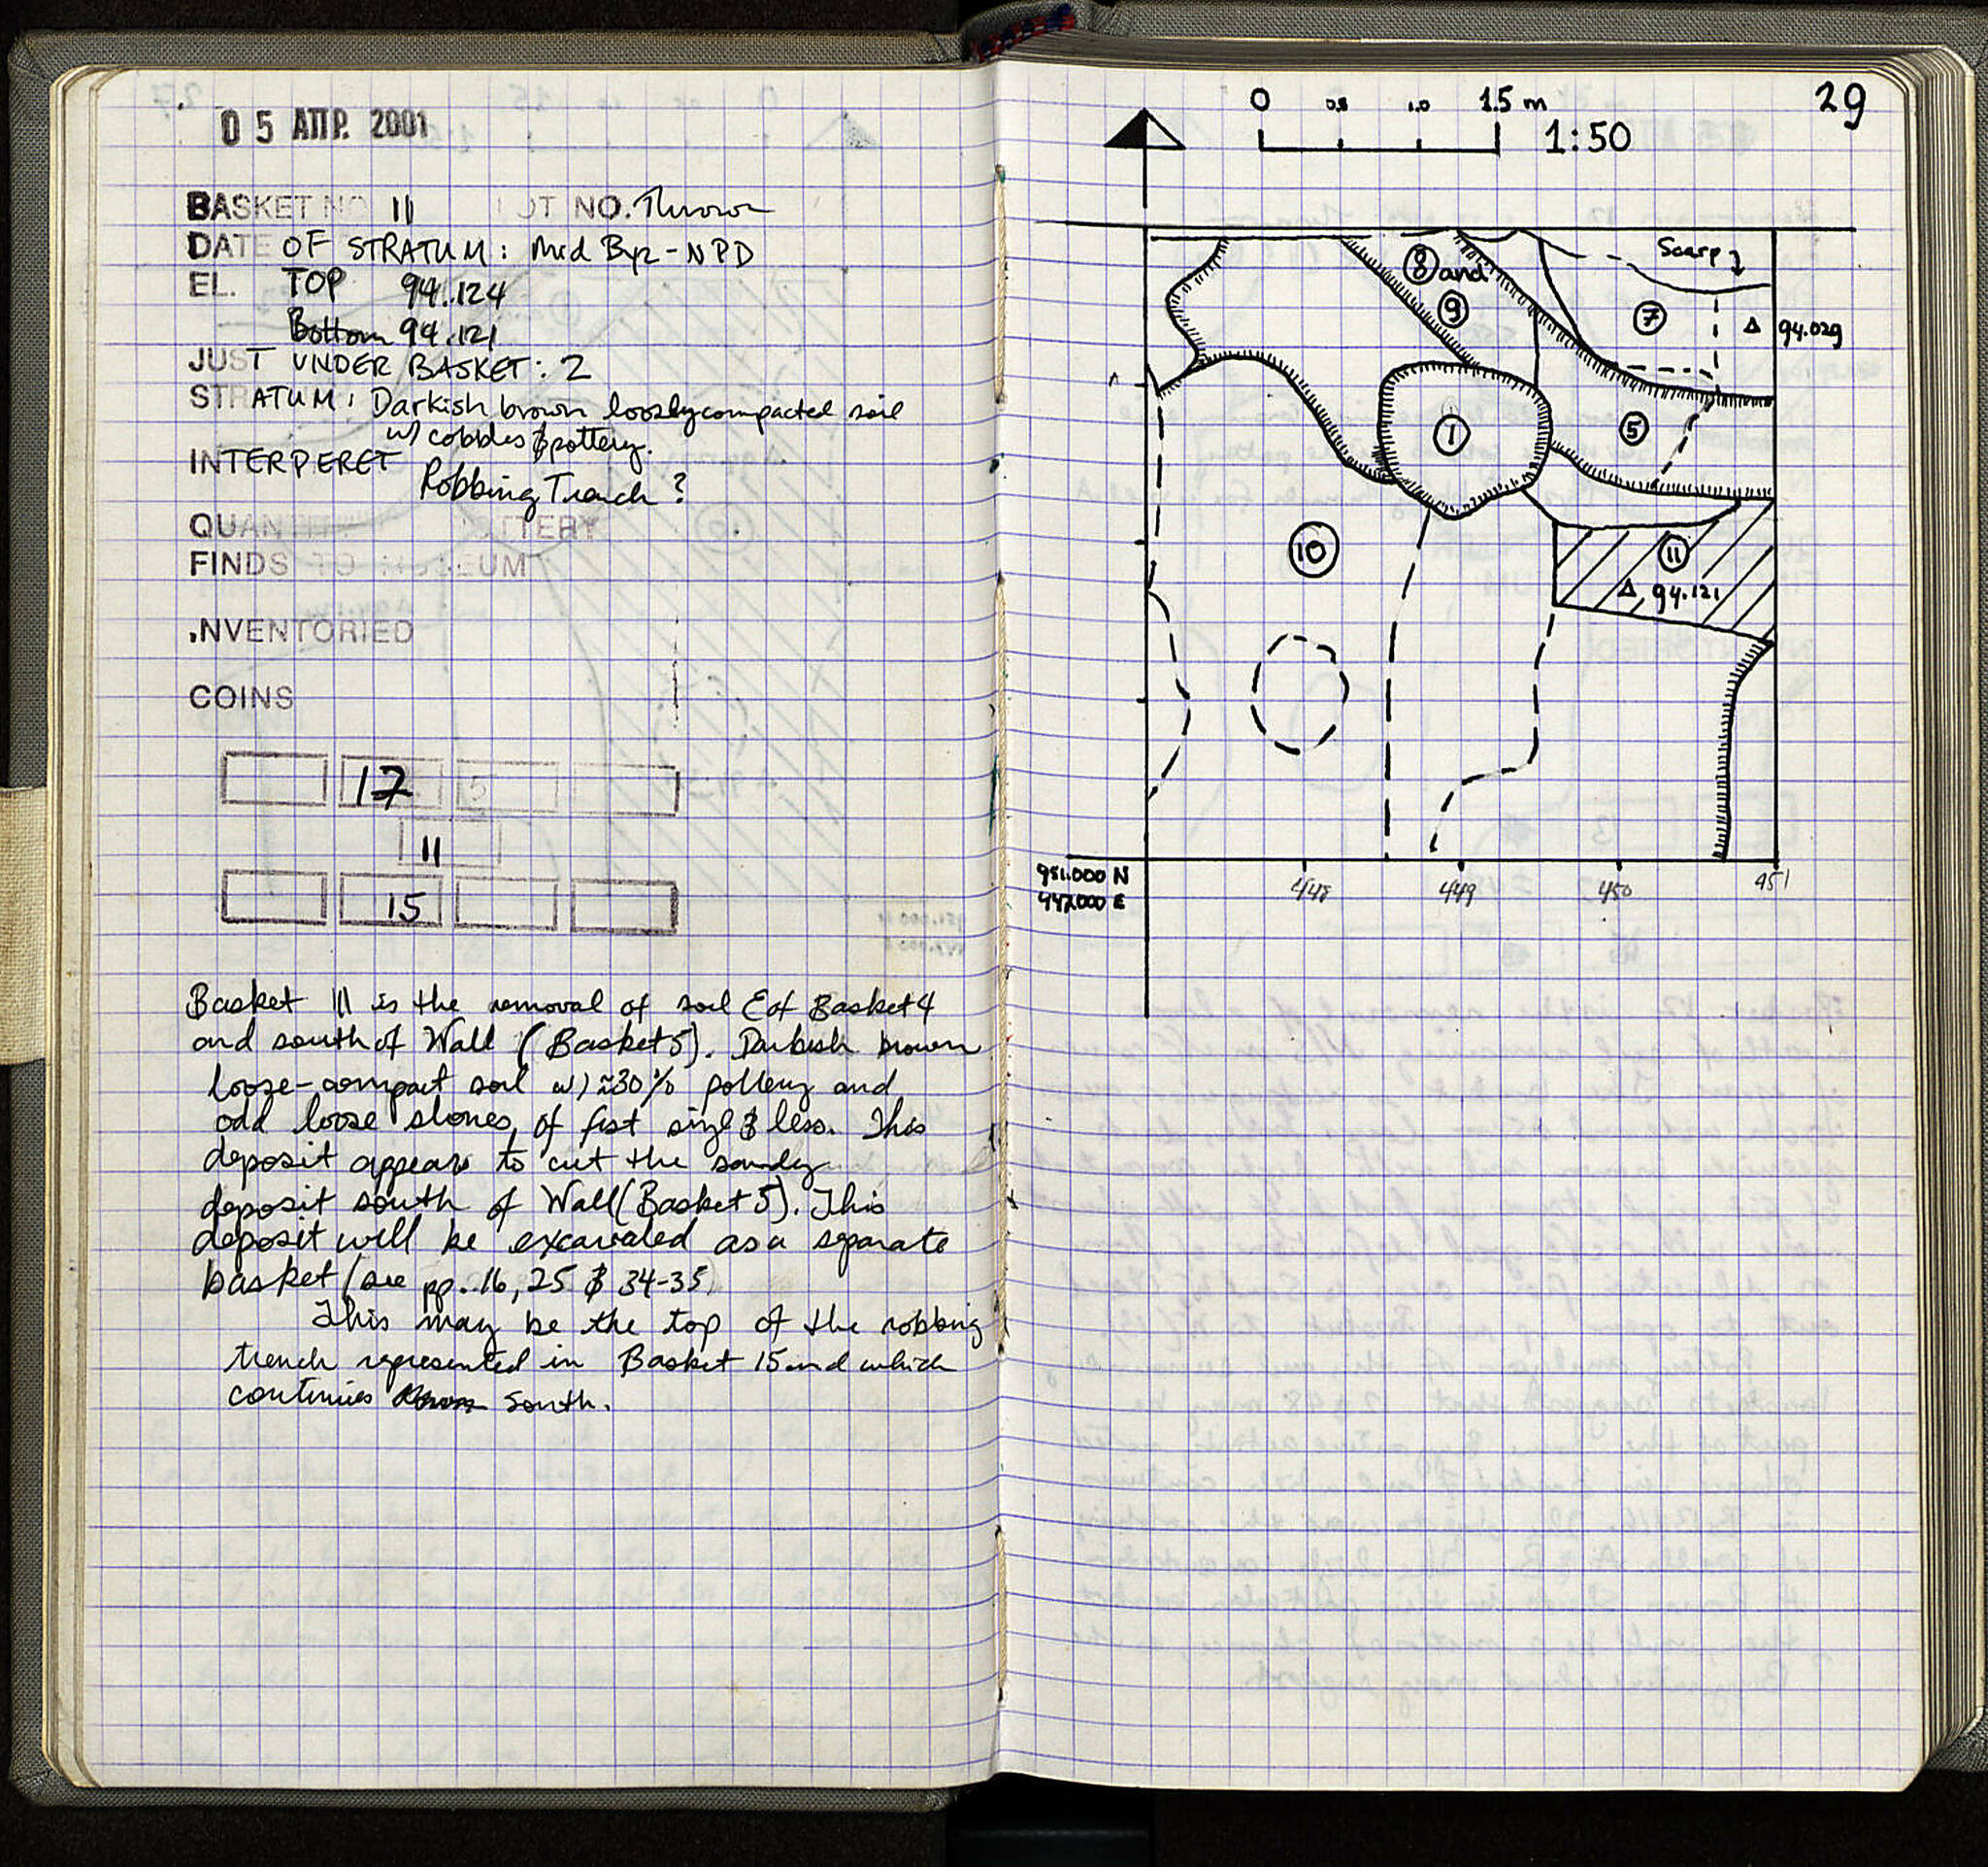 05 ΑΠΡ. 2001
BASKET NO 11 LOT NO. Thrown
DATE OF STRATUM: Mid Byz - NPD
EL. TOP 94.124
Bottom 94.121
JUST UNDER BASKET: 2
STRATUM: Darkish brown loosly compacted soil
w/ cobbles & pottery.
INTERPERET
Robbing Trench?
QUANTITY POTTERY
FINDS TO MUSEUM
INVENTORIED
COINS
17
11
15
Basket 11 is the removal of soil E of Basket 4
and south of Wall (Basket 5). Darkish brown
loose-compact soil w/ ≈30% pottery and
odd loose stones, of fist size & less. This
deposit appears to cut the sandy
deposit south of Wall (Basket 5). This
deposit will be excavated as a separate
basket (see pp. 16, 25 & 34-35)
This may be the top of the robbing
trench represented in Basket 15 and which
continues south.
29
0 0.5 1.0 1.5 m
1:50
Scarp
8 and
9
7
94.029
1
5
10
11
94.121
951.000 N
947.000 E
448
449
450
451